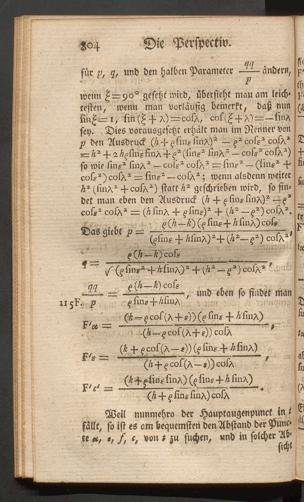 804 Die Perspectiv.
für p, q, und den halben Parameter qq/p ändern,
wenn ξ=90° gesetzt wird, übersieht man am leich-
testen, wenn man vorläufig bemerkt, daß nun
sinξ=1, sin(ξ+λ)=cosλ, cos(ξ+λ)=−sinλ
sey. Dies vorausgesetzt erhält man im Nenner von
p den Ausdruck (h+ϱsinε sinλ)² − ϱ²cosε²cosλ²
=h²+2hϱsinε sinλ+ϱ²(sinε²sinλ²−cosε²cosλ²)
so wie sinε²sinλ²−cosε²cosλ²=sinε²−(sinε²+
cosε²)cosλ²=sinε²−cosλ²; wenn alsdenn weiter
h²(sinλ²+cosλ²) statt h² geschrieben wird, so fin-
det man eben den Ausdruck (h+ϱsinε sinλ)²−ϱ²
cosε²cosλ²=(h sinλ+ϱsinε)²+(h²−ϱ²)cosλ².
Das giebt p = ϱ(h−k)(ϱsinε+h sinλ)cosε / (ϱsinε+h sinλ)²+(h²−ϱ²)cosλ²,
q = ϱ(h−k)cosε / √(ϱsinε²+h sinλ)²+(h²−ϱ²)cosλ²,
qq/p = ϱ(h−k)cosε / ϱsinε+h sinλ, und eben so findet man
115F.
F'α = (k−ϱcos(λ+ε))(ϱsinε+h sinλ) / (h−ϱcosλ+ε))cosλ,
F'ε = (k+ϱcos(λ−ε))(ϱsinε+h sinλ) / (h+ϱcos(λ−ε))cosλ,
F'c' = (k+ϱsinε sinλ)(ϱsinε+h sinλ) / (h+ϱsinε sinλ)cosλ.
Weil nunmehro der Hauptaugenpunct in
fällt, so ist es am bequemsten den Abstand der Punc-
zu suchen, und in solcher Ab-
sicht